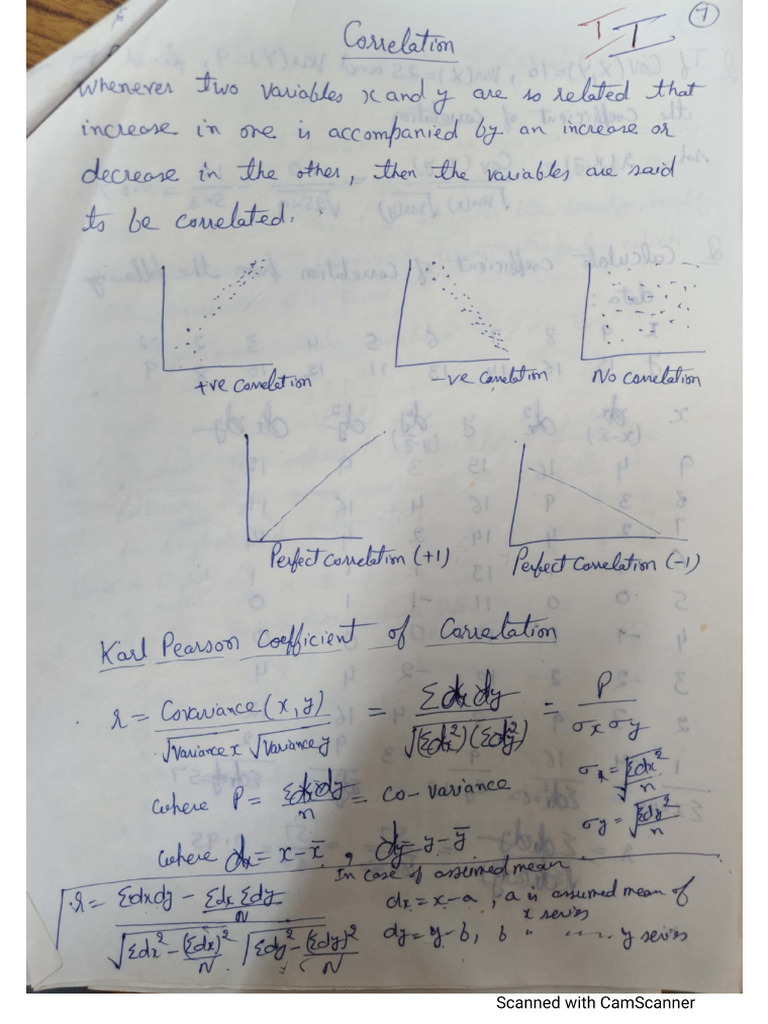 1
Correlation
Whenever two variables x and y are so related that
increase in one is accompanied by an increase or
decrease in the other, then the variables are said
to be correlated.
+ve correlation
-ve correlation
No correlation
Perfect correlation (+1)
Perfect correlation (-1)
Karl Pearson Coefficient of Correlation
r = Covariance (x, y) / √variance x √variance y = Σdx dy / √(Σdx²)(Σdy²) = P / σx σy
σx = √Σdx²/n
where P = Σdxdy/n = co-variance
σy = √Σdy²/n
where dx = x - x̄, dy = y - ȳ
In case of assumed mean
r = Σdxdy - Σdx Σdy/N / √Σdx² - (Σdx)²/N √Σdy² - (Σdy)²/N
dx = x - a, a is assumed mean of
x series
dy = y - b, b " y series
Scanned with CamScanner